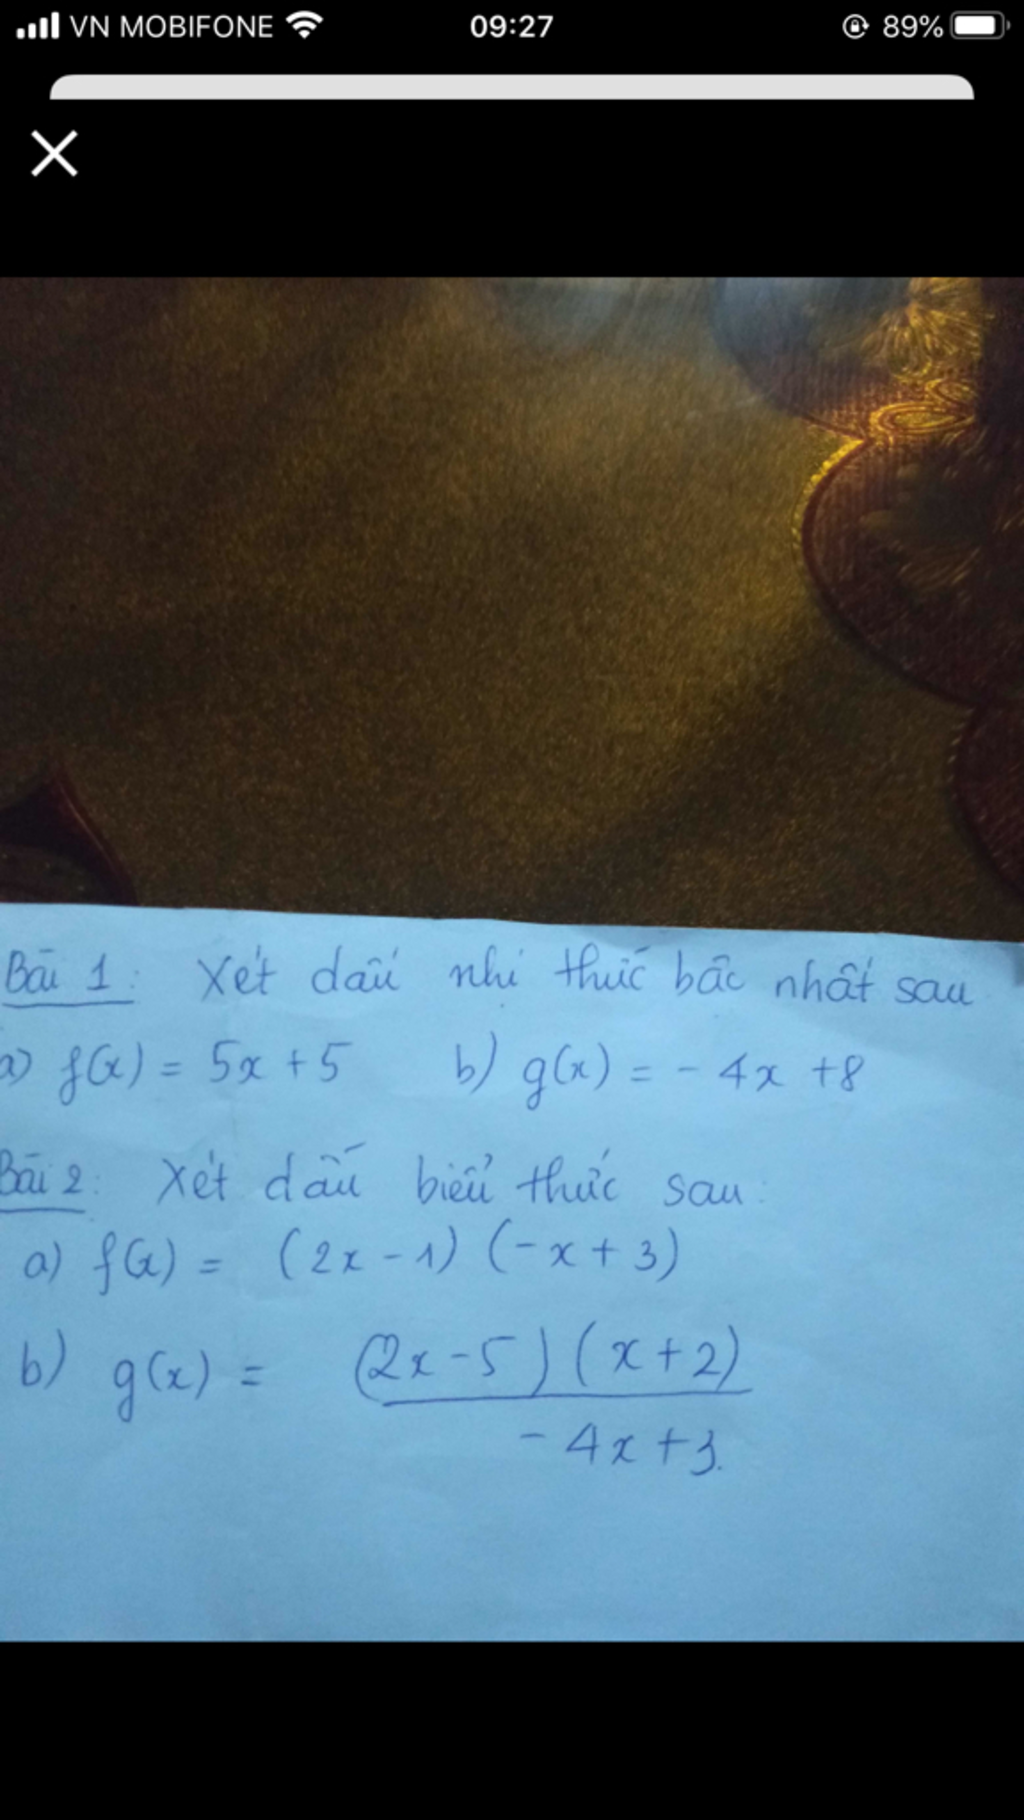 VN MOBIFONE 09:27 89%
Bài 1: Xét dấu nhị thức bậc nhất sau
a) f(x) = 5x + 5 b) g(x) = - 4x + 8
Bài 2: Xét dấu biểu thức sau:
a) f(x) = (2x - 1) (-x + 3)
b) g(x) = (2x - 5) (x + 2)
- 4x + 3.